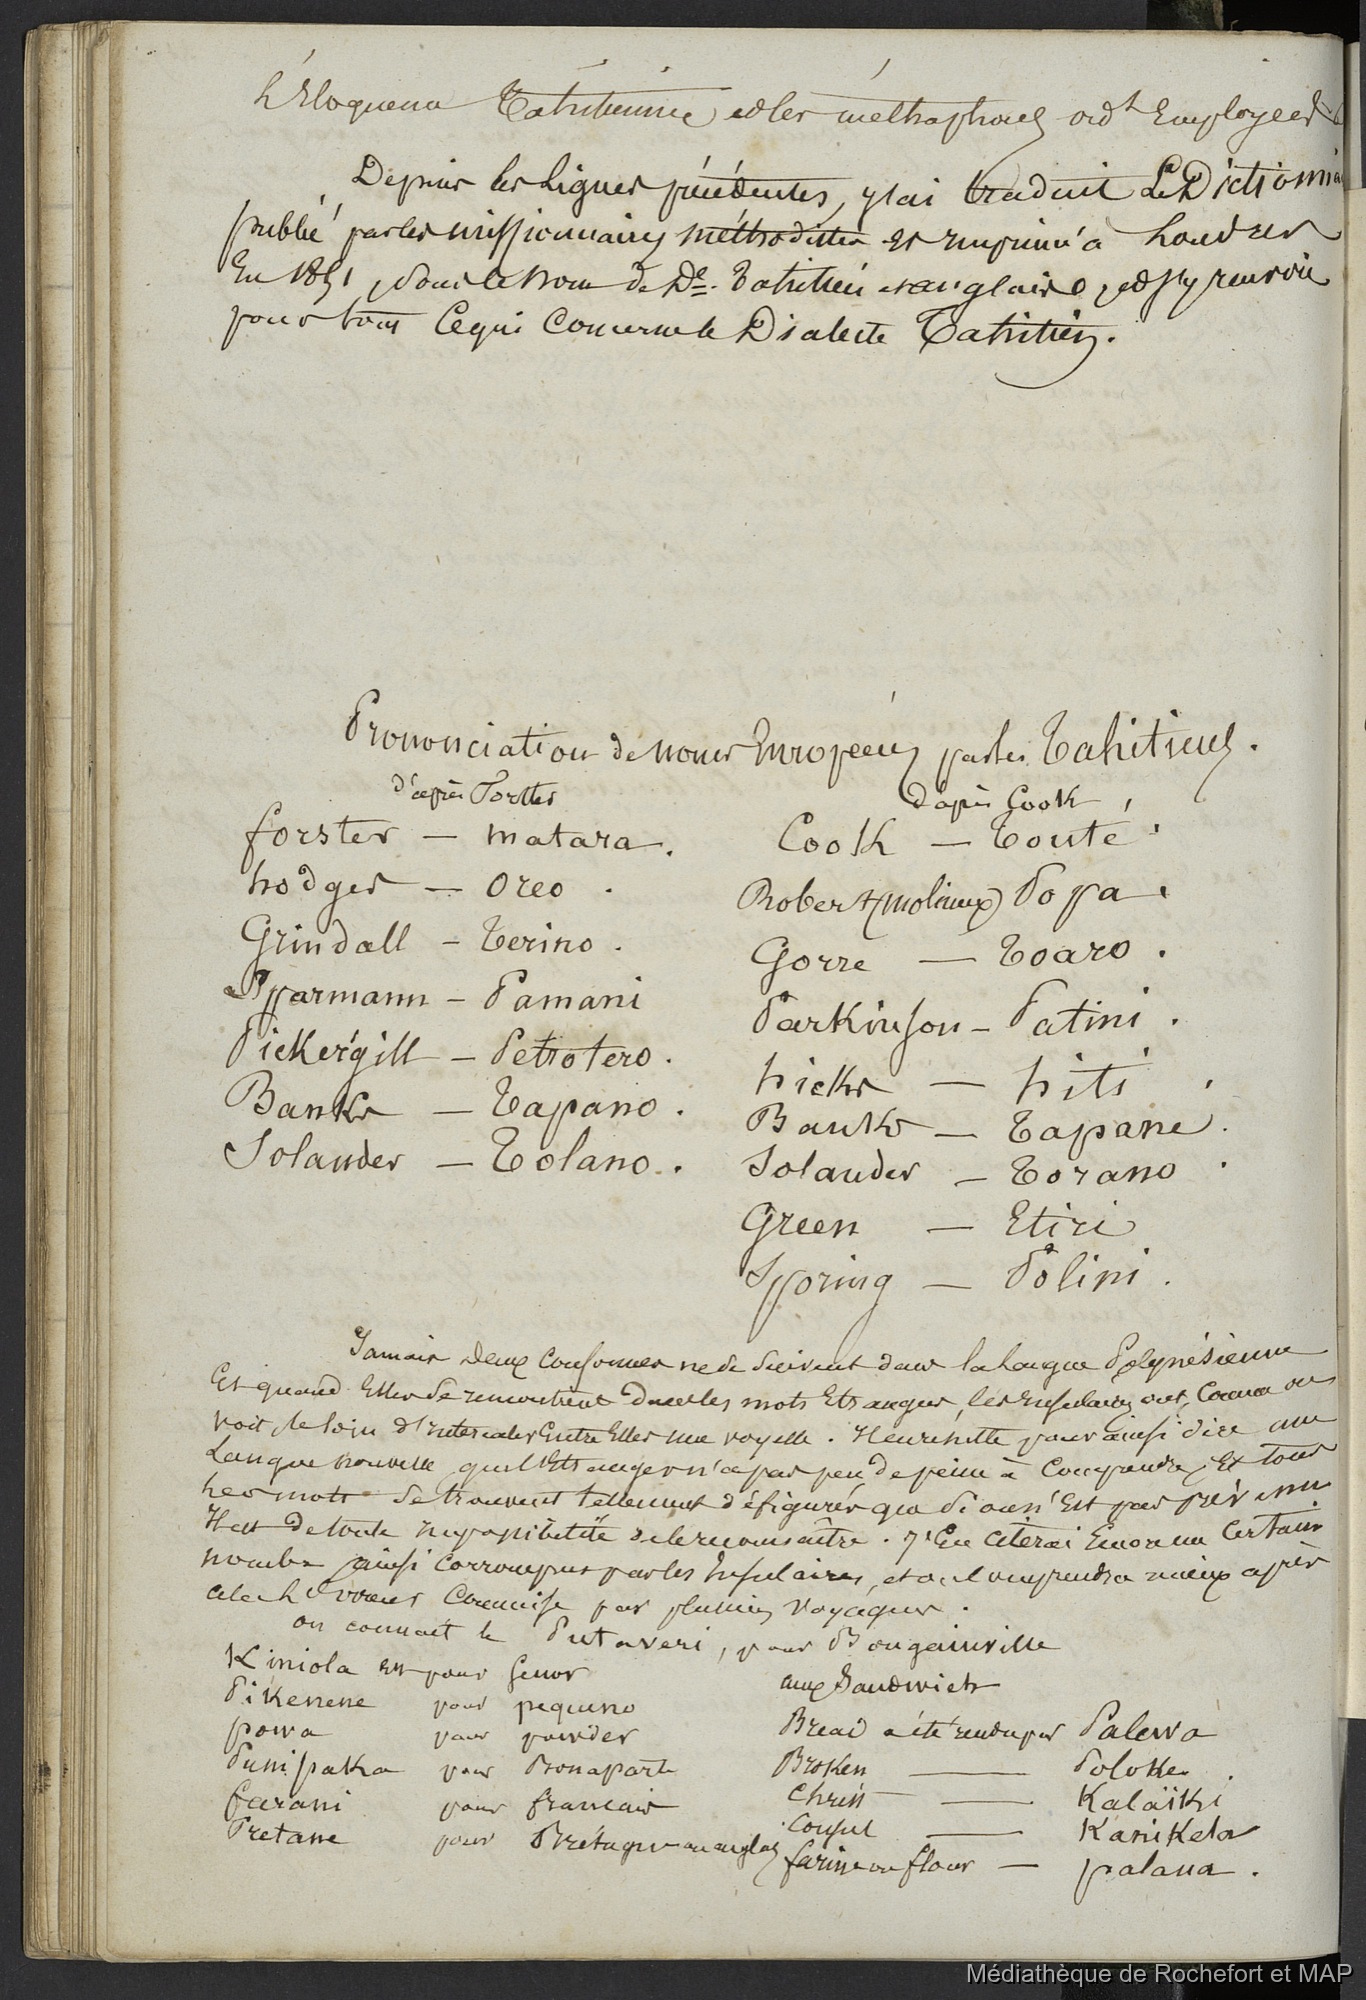 L'Eloquence Tahitienne et les métaphores ord.t Employées
Depuis les lignes précédentes, j'ai traduit Le Dictionnai
publié par les missionnaires méthodistes et imprimé à Londres
En 1851, sous le nom de D.re Tahitien et anglais, et j'y renvoie
pour tout Ce qui Concerne le Dialecte Tahitien.
Prononciation de noms Européens par les Tahitiens.
d'après Forster
d'après Cook
forster — matara.
Cook — Touté.
hodges — Oreo.
Robert (molineux) Popa.
Grindall — Terino.
Gorre — Toaro.
Sparmann — Pamani
Parkinson — Patini.
Pickergill — Petrotero.
hicks — hiti.
Banks — Tapano.
Banks — Tapane.
Solander — Tolano.
Solander — Torano.
Green — Etiri
Sporing — Polini.
Jamais deux Consonnes ne se suivent dans la langue Polynésienne
Et quand Elles se rencontrent dans les mots Etrangers, les Insulaires ont, Comme on
voit, le soin d'intercaler Entre Elles une voyelle. Il en résulte pour ainsi dire une
Langue nouvelle que l'Etranger n'a pas peu de peine à Comprendre, Et tous
les mots se trouvent tellement défigurés que si on n'Est pas prévenu
Il est de toute impossibilité de le reconnaître. J'En citerai Encore un Certain
nombre ainsi corrompus par les Insulaires, et on comprendra mieux après
cela h commise par plusieurs voyageurs.
on connaît le Putaveri, pour Bougainville
Kiniola est pour Senor
aux Sandwich
Pikenene pour pequeno
Bread a été rendu par Palewa
powa pour powder
Broken — Poloke.
Punipaka pour Bonaparte
Christ — Kalaïki
farani pour francais
Consul — Kanikela
Pretane pour Bretagne ou anglais
farine ou flour — palaua.
Médiathèque de Rochefort et MAP